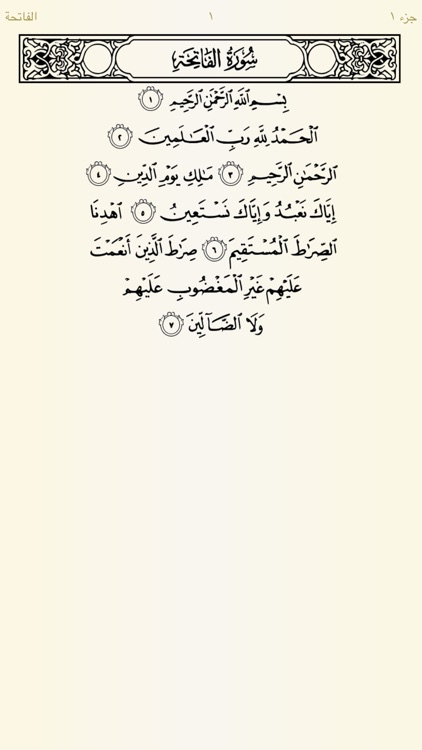 جزء ١ ١ الفاتحة
سُورَةُ الفَاتِحَةِ
بِسْمِ ٱللَّهِ ٱلرَّحْمَٰنِ ٱلرَّحِيمِ ١
ٱلْحَمْدُ لِلَّهِ رَبِّ ٱلْعَٰلَمِينَ ٢
ٱلرَّحْمَٰنِ ٱلرَّحِيمِ ٣ مَٰلِكِ يَوْمِ ٱلدِّينِ ٤
إِيَّاكَ نَعْبُدُ وَإِيَّاكَ نَسْتَعِينُ ٥ ٱهْدِنَا
ٱلصِّرَٰطَ ٱلْمُسْتَقِيمَ ٦ صِرَٰطَ ٱلَّذِينَ أَنْعَمْتَ
عَلَيْهِمْ غَيْرِ ٱلْمَغْضُوبِ عَلَيْهِمْ
وَلَا ٱلضَّآلِّينَ ٧